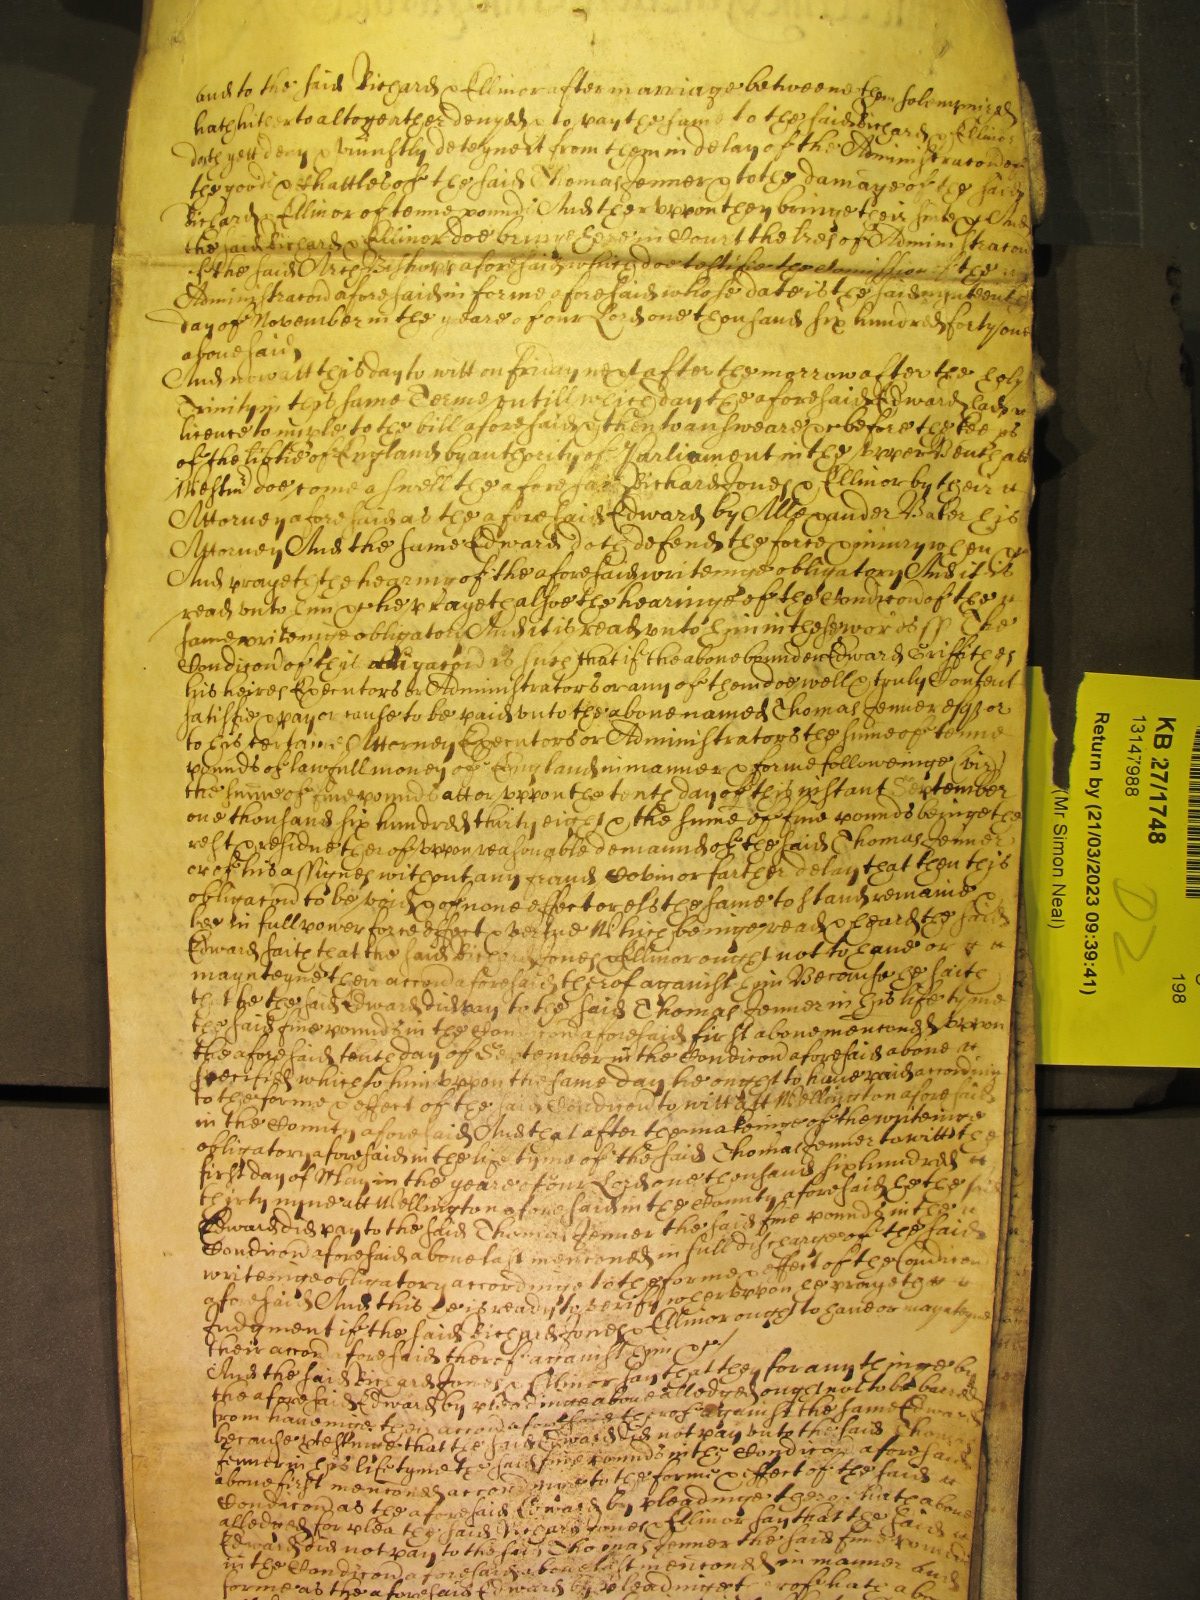 and to the said Richard & Ellinor after marriage betweene them solempnized
hath hitherto altogeather denyed & to pay the same to the said Richard & Ellinor
doth yett deny & uniustly deteyneth from them in delay of the Administracon of
the goods & Chattles of the said Thomas Jenner & to the damage of the said
Richard & Ellinor of tenne pounds And therupon they bringe their suite & And
the said Richard & Ellinor doe bringe here in Court the lres of Administracon
of the said ArchBishopp aforesaid which doe testifie the Comission of the
Administracon aforesaid in forme aforesaid whose date is the said nynteenth
day of November in the yeare of our Lord one thousand six hundred forty one
abovesaid
And now att this day to witt on friday next after the morrow after the holy
Trinity in this same Terme untill which day the aforesaid Edward had
licence to imple to the bill aforesaid & then to answeare &c before the keeps
of the libtie of England by authority of Parliament in the upper Bench att
Westm doe come aswell the aforesaid Richard Jones & Ellinor by their
Attorney aforesaid as the aforesaid Edward by Allexander Baker his
Attorney And the same Edward doth defend the force & iniury when &c
And prayeth the hearing of the aforesaid writeinge obligatory And it is
read unto him &c he prayeth alsoe the hearinge of the Condicon of the
same writeinge obligatory And it is read unto him in these words ss The
Condicon of this obligacon is such that if the above bounden Edward Griffithes
his heires Executors or Administrators or any of them doe well & truly Content
satisfie & pay or cause to be paid unto the above named Thomas Jenner esqr or
to his certaine Attorney Executors or Administrators the sume of tenne
pounds of lawfull money of England in manner & forme followeinge viz
the sume of five pounds att or uppon the tenth day of this instant September
one thousand six hundred thirty eight & the sume of five pounds beinge the
rest & residue therof uppon reasonable demaund of the said Thomas Jenner
or of his assignes without any fraud Covin or farther delay that then this
obligacon to be void & of none effect or els the same to stand remaine &
bee in full power force effect & vertue Which beinge read & heard the said
Edward saith that the said Richard Jones & Ellinor ought not to have or
maynteyne their accon aforesaid therof against him Because he saith
that he the said Edward did pay to the said Thomas Jenner in his life tyme
the said five pounds in the Condicon aforesaid first above menconed uppon
the aforesaid tenth day of September in the Condicon aforesaid above
specified which to him uppon the same day he ought to have paid according
to the forme & effect of the said Condicon to witt att Wellington aforesaid
in the County aforesaid And that after the makeinge of the writeinge
obligatory aforesaid in the life tyme of the said Thomas Jenner to witt the
first day of May in the yeare of our Lord one thousand six hundred
thirty nyne att Wellington aforesaid in the County aforesaid he the said
Edward did pay to the said Thomas Jenner the said five pounds in the
Condicon aforesaid above last menconed in full discharge of the said
writeinge obligatory accordinge to the forme & effect of the Condicon
aforesaid And this he is ready to verify wherupon he prayeth
Judgment if the said Richard Jones & Ellinor ought to have or maynteyne
their accon aforesaid therof against him &c
And the said Richard Jones & Ellinor say that they for any thinge by
the aforesaid Edward by pleadinge above alledged ought not to be barred
from haveinge their accon aforesaid therof against the same Edward
because protestinge that the said Edward did not pay unto the said Thomas
Jenner in his life tyme the said five pounds in the Condicon aforesaid
above first menconed accordinge to the forme & effect of the said
Condicon as the aforesaid Edward by pleadinge therof hath above
alledged for plea the said Richard Jones & Ellinor say that the said
Edward did not pay to the said Thomas Jenner the said five pounds
in the Condicon aforesaid above last menconed in manner and
forme as the aforesaid Edward by pleadinge therof hath above
KB 27/1748
13147988
Return by (21/03/2023 09:39:41)
(Mr Simon Neal)
D2
198